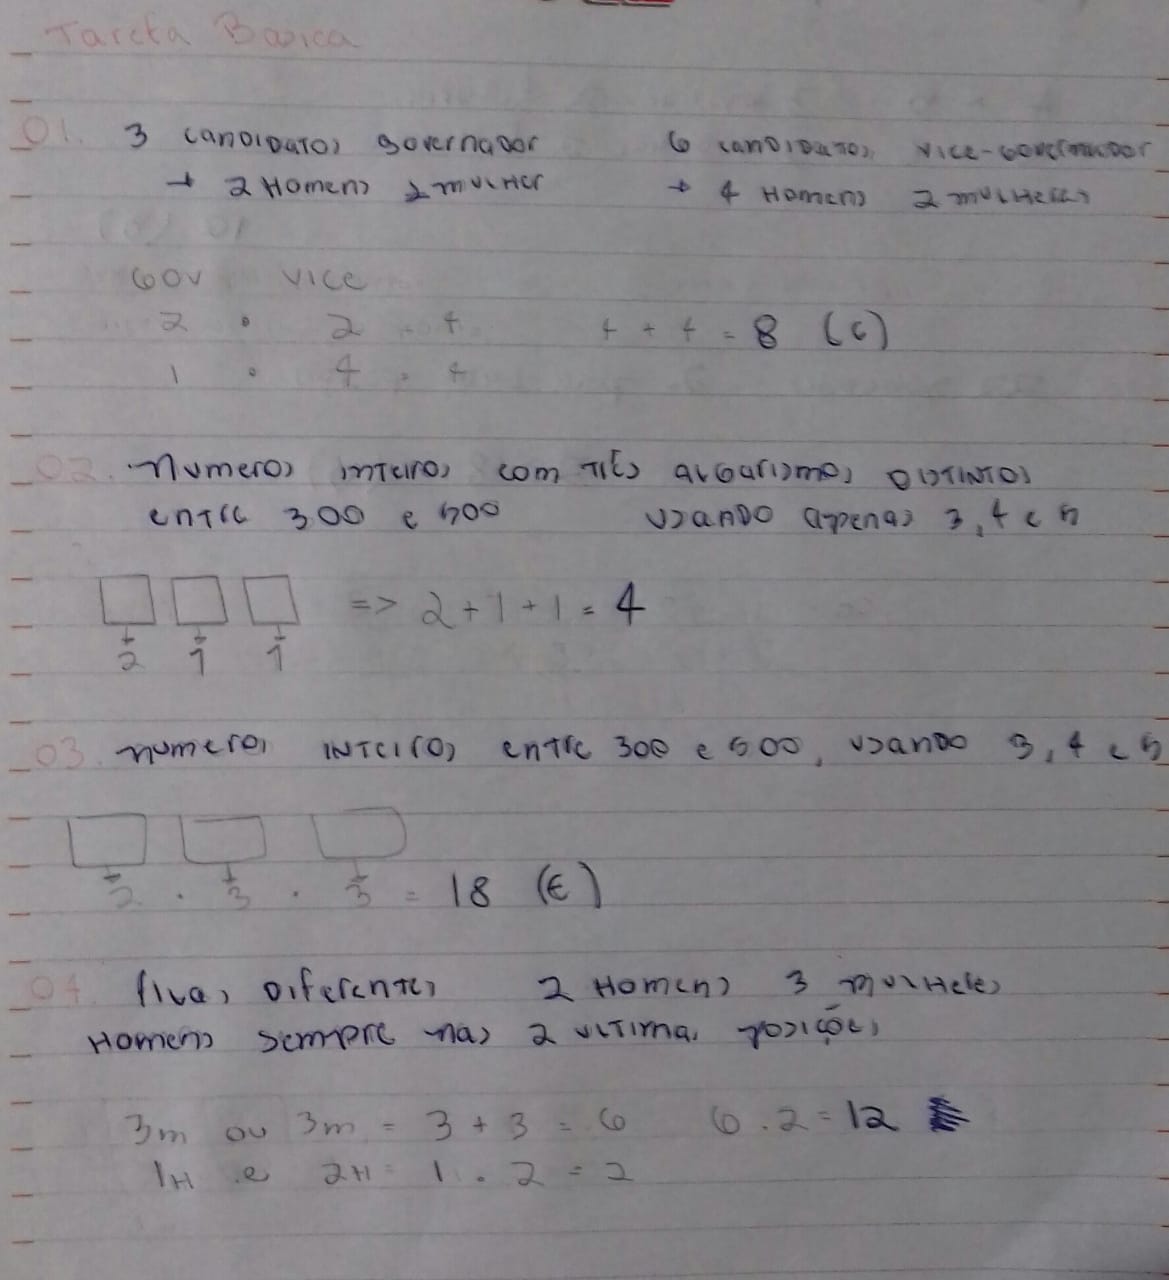 Tarefa Basica
01. 3 candidatos governador 6 candidatos vice-governador
→ 2 Homens 1 mulher → 4 Homens 2 mulheres
Gov Vice
2 . 2 = 4 4 + 4 = 8 (C)
1 . 4 = 4
02. Numeros inteiros com três algarismos distintos
entre 300 e 500 usando apenas 3, 4 e 5
=> 2 + 1 + 1 = 4
2 1 1
03. numeros inteiros entre 300 e 500, usando 3, 4 e 5
2 . 3 . 3 = 18 (E)
04. filas diferentes 2 Homens 3 mulheres
Homens sempre nas 2 ultimas posições
3m ou 3m = 3 + 3 = 6 6 . 2 = 12
1H e 2H = 1 . 2 = 2